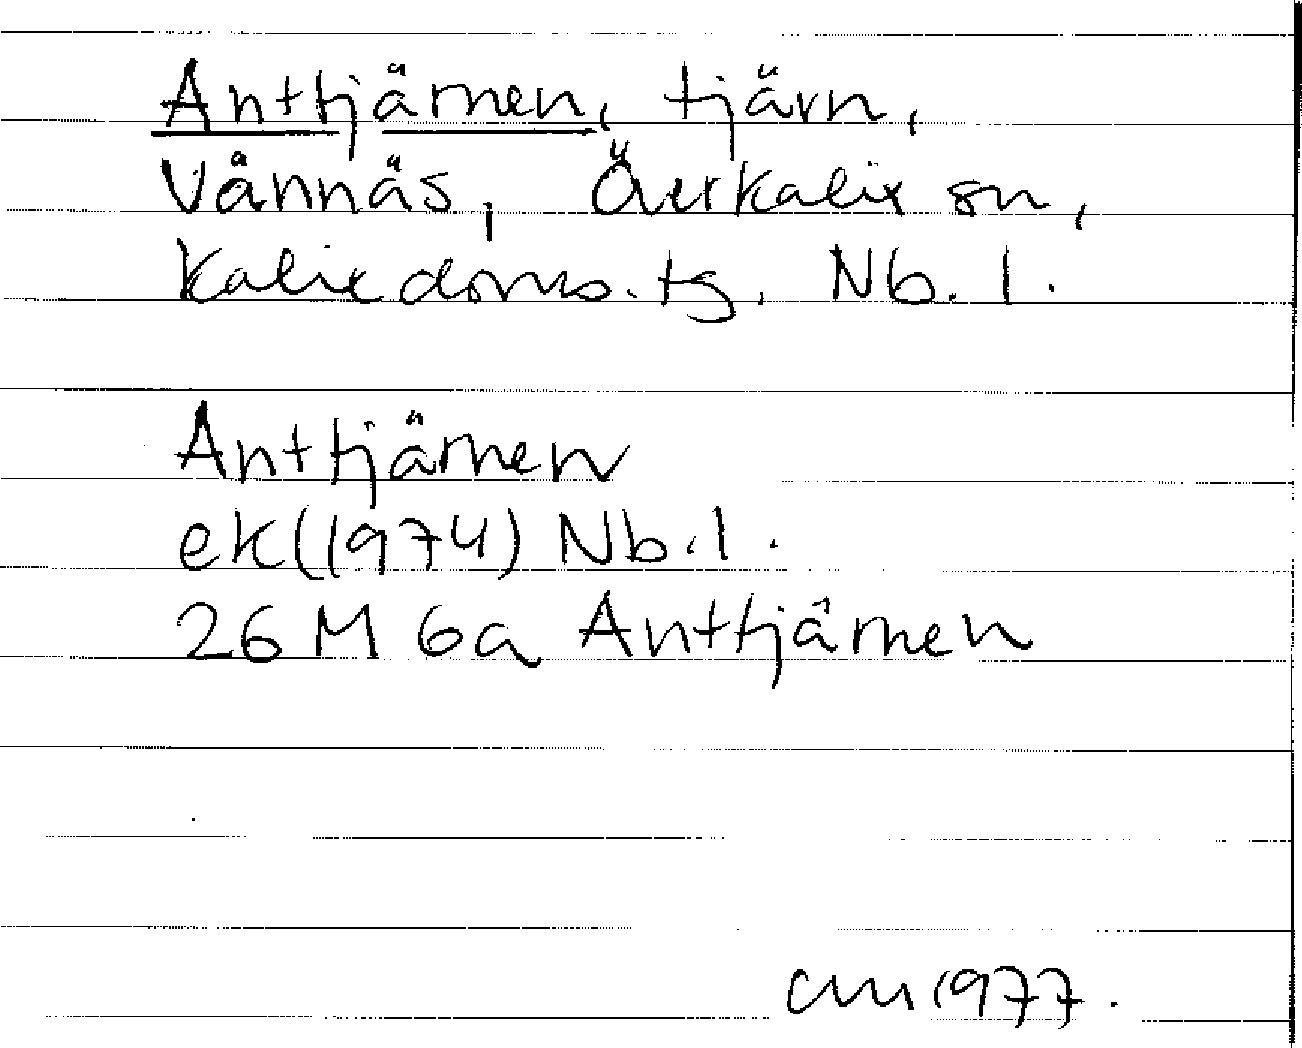 Anttjärnen, tjärn,
Vännäs, Överkalix sn,
Kalix doms. tg. Nb. l.
Anttjärnen
ek (1974) Nb. l.
26 M 6a Anttjärnen
1977.